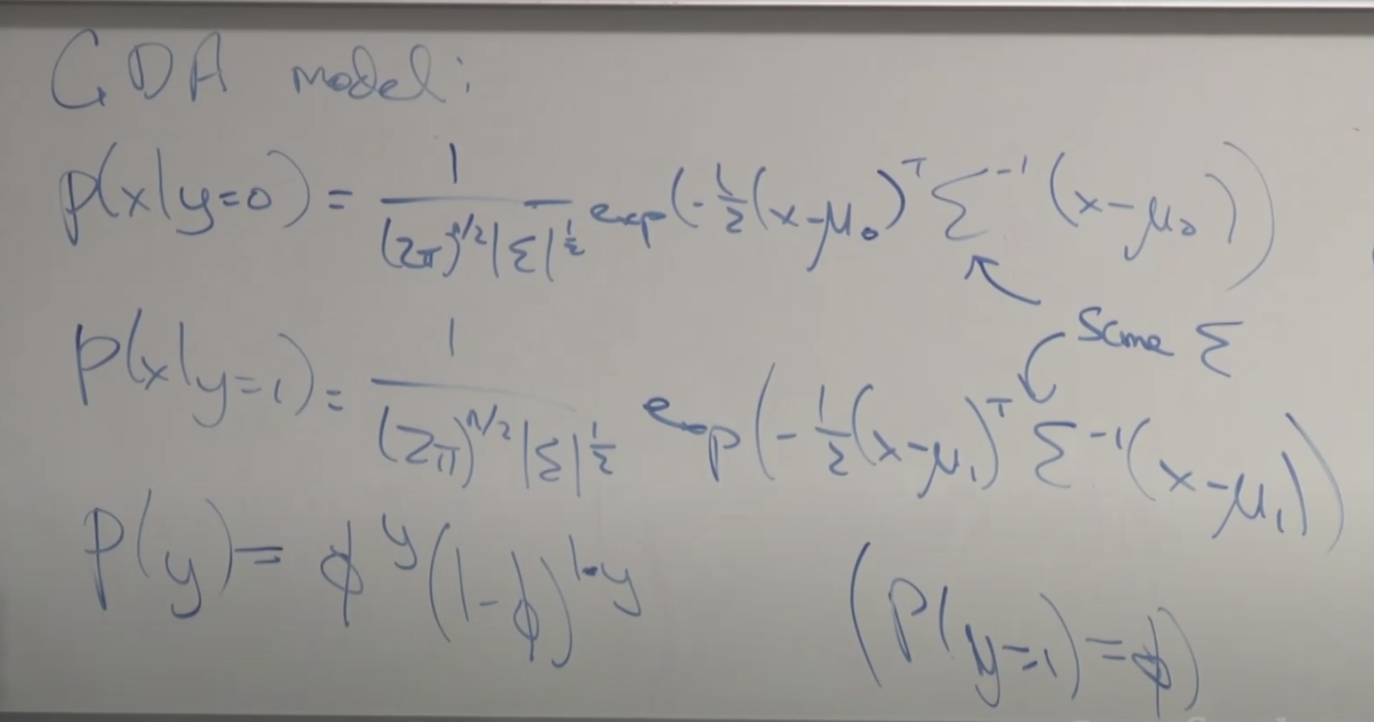 GDA model:
p(x|y=0) = 1/((2π)^(n/2) |Σ|^(1/2)) exp(-1/2 (x-μ₀)ᵀ Σ⁻¹ (x-μ₀))
Same Σ
p(x|y=1) = 1/((2π)^(n/2) |Σ|^(1/2)) exp(-1/2 (x-μ₁)ᵀ Σ⁻¹ (x-μ₁))
P(y) = φ^y (1-φ)^(1-y) (P(y=1) = φ)